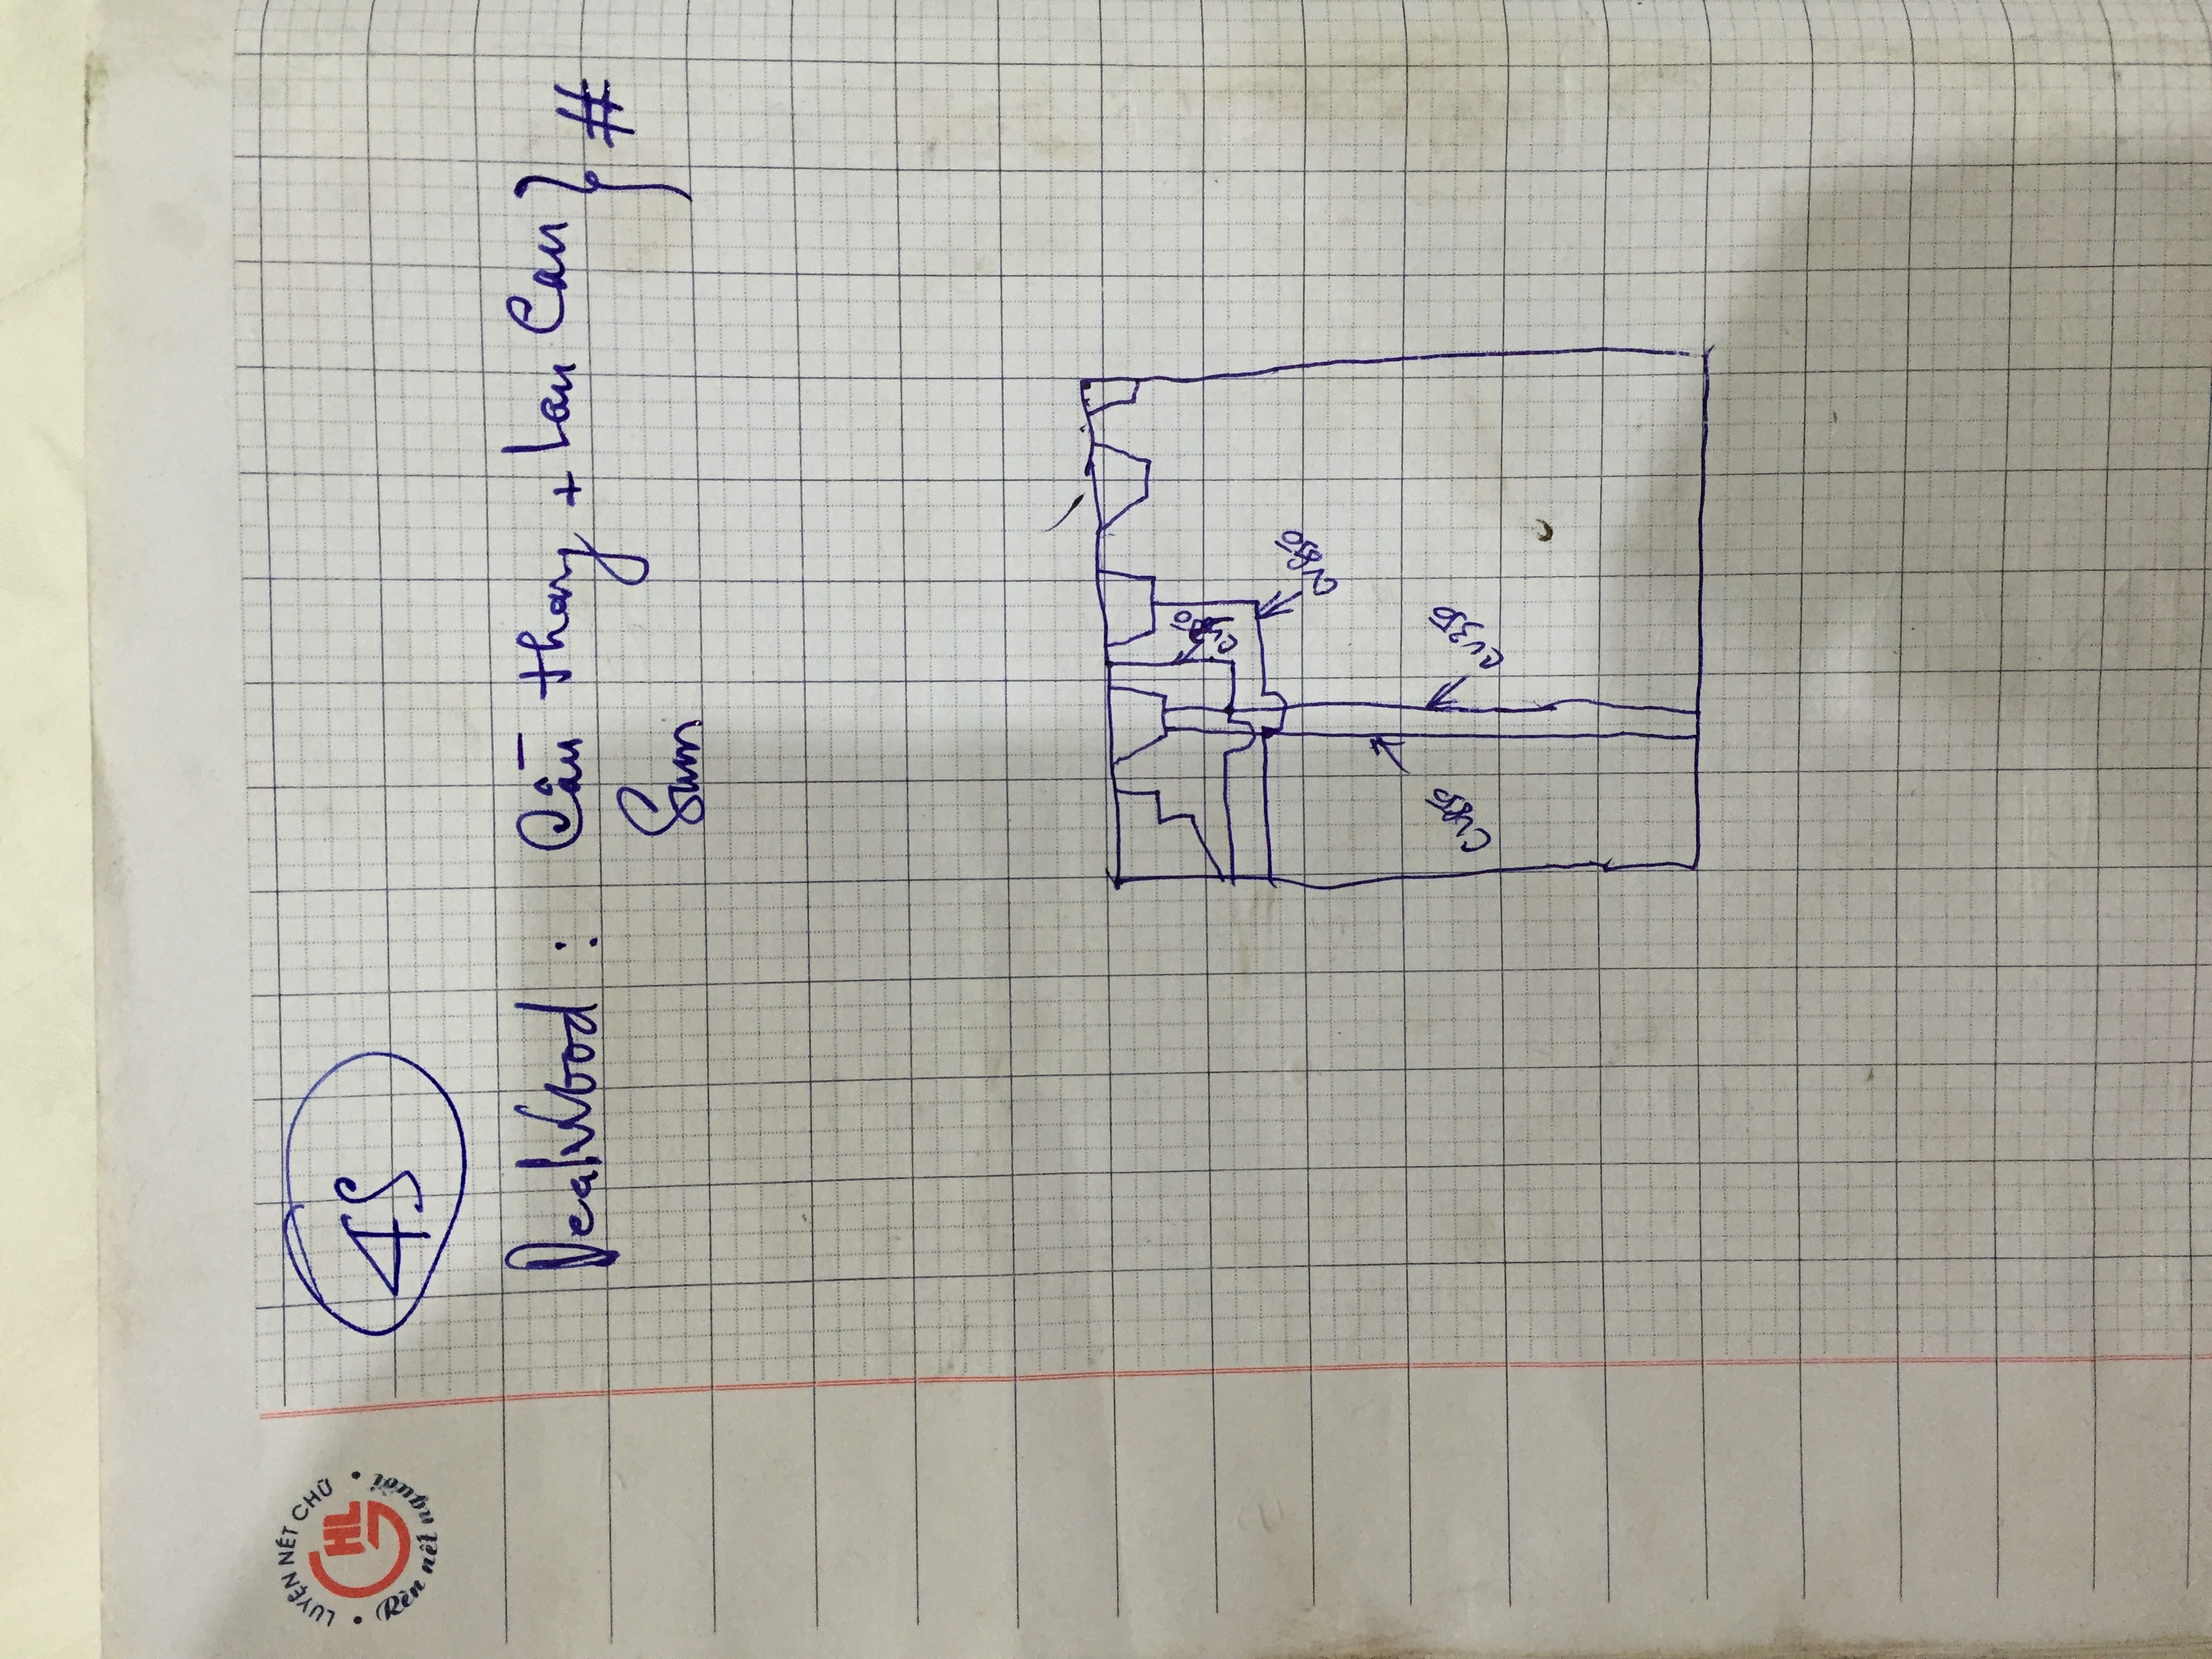 LUYỆN NẾT CHỮ
GHL
Rèn nết người
4S
DeaWood : Cầu thang + Lan Can } #
Sum
CV850
CV850
CV350